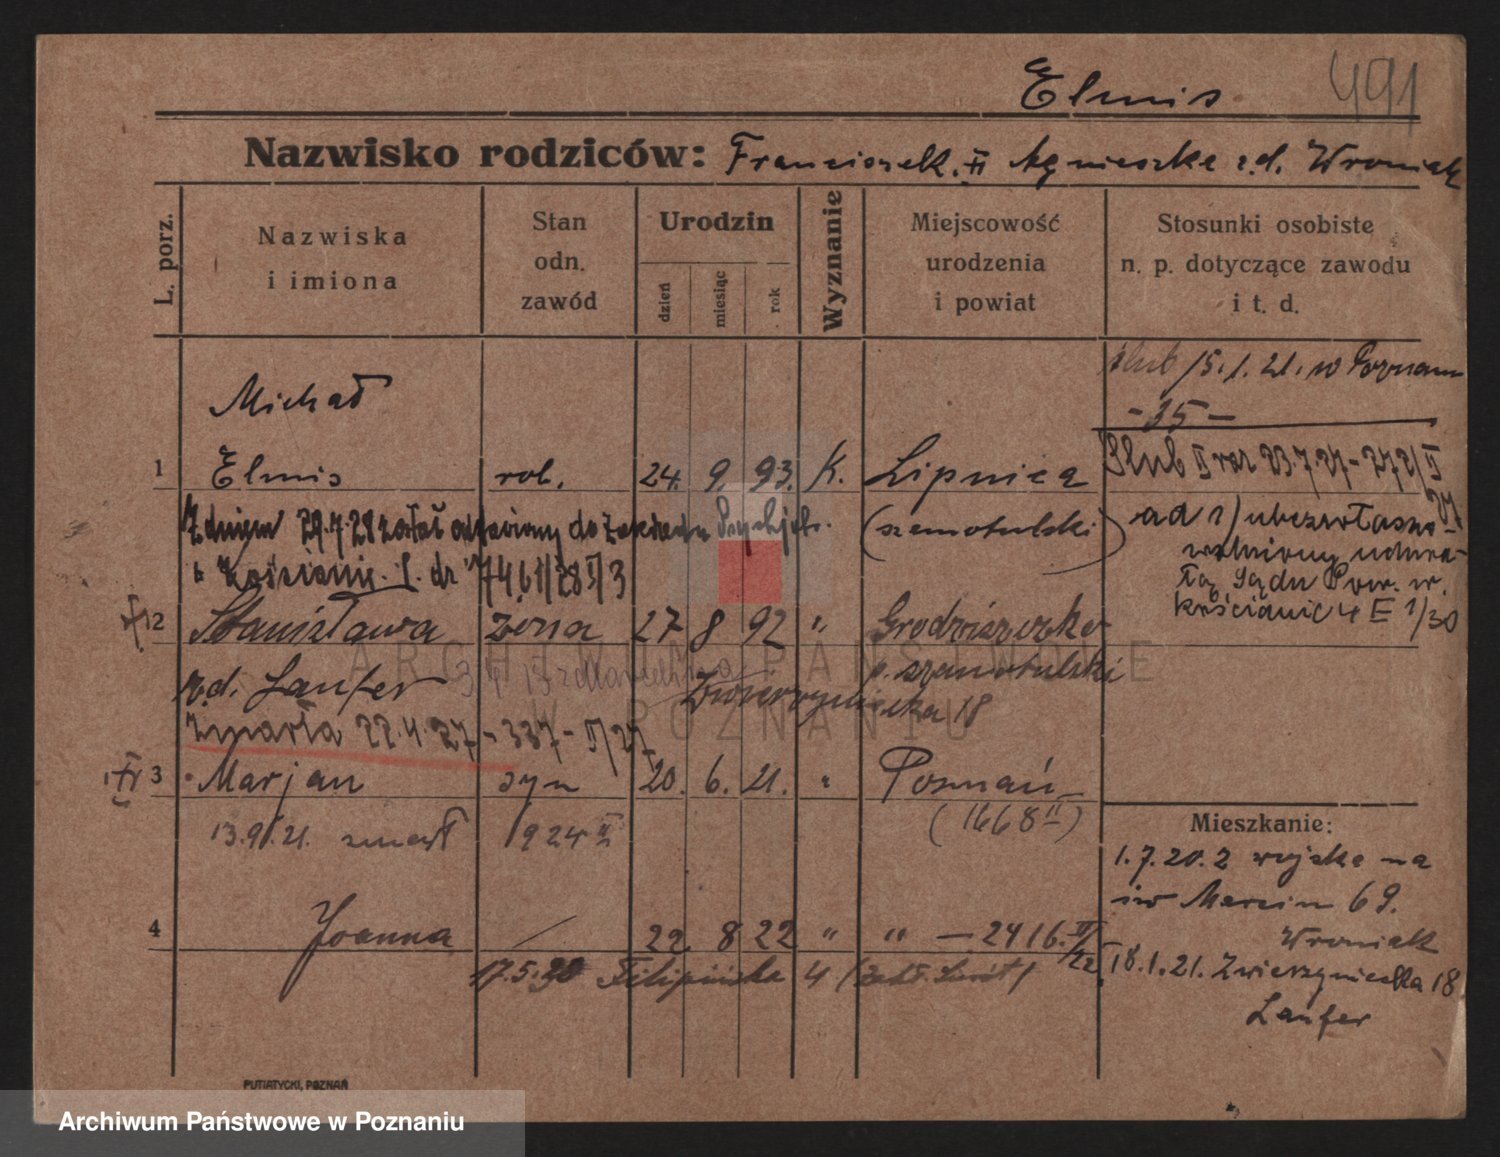 Elmis 491
Nazwisko rodziców: Franciszek. II Agnieszka z.d. Wroniak
L. porz.
Nazwiska
i imiona
Stan
odn.
zawód
Urodzin
dzień
miesiąc
rok
Wyznanie
Miejscowość
urodzenia
i powiat
Stosunki osobiste
n. p. dotyczące zawodu
i t. d.
ślub 15.1.21. w Poznaniu
-35-
Michał
1 Elmis rob. 24. 9. 93. K. Lipnica
Ślub II raz 23.7.27 - 272/II
27
(szamotulski)
Z dniem 29.4.28 został odstawiony do Zakładu Psychjatr.
w Kościanie. L. dz 7461/28 I/3
ad 1) ubezwłasno-
wolniony uchwa-
łą Sądu Pow. w.
Kościanie 4 E 1/30
2 Stanisława żona 27 8 92 " Grodziszczko
p. szamotulski
z.d. Laufer
Zwierzyniecka 18
Zmarła 22.4.27 - 337 - II/27
3 Marjan syn 20. 6. 21. " Poznań
(1668 II)
13.9.21. zmarł 1924 II
4 Joanna 22. 8 22 " " — 2416. II/22
17.5.30 Filipińska 4
Mieszkanie:
1.7.20. z wojska na
św Marcin 69.
Wroniak
18.1.21. Zwierzyniecka 18
Laufer
PUTIATYCKI, POZNAŃ
ARCHIWUM PAŃSTWOWE
W POZNANIU
Archiwum Państwowe w Poznaniu